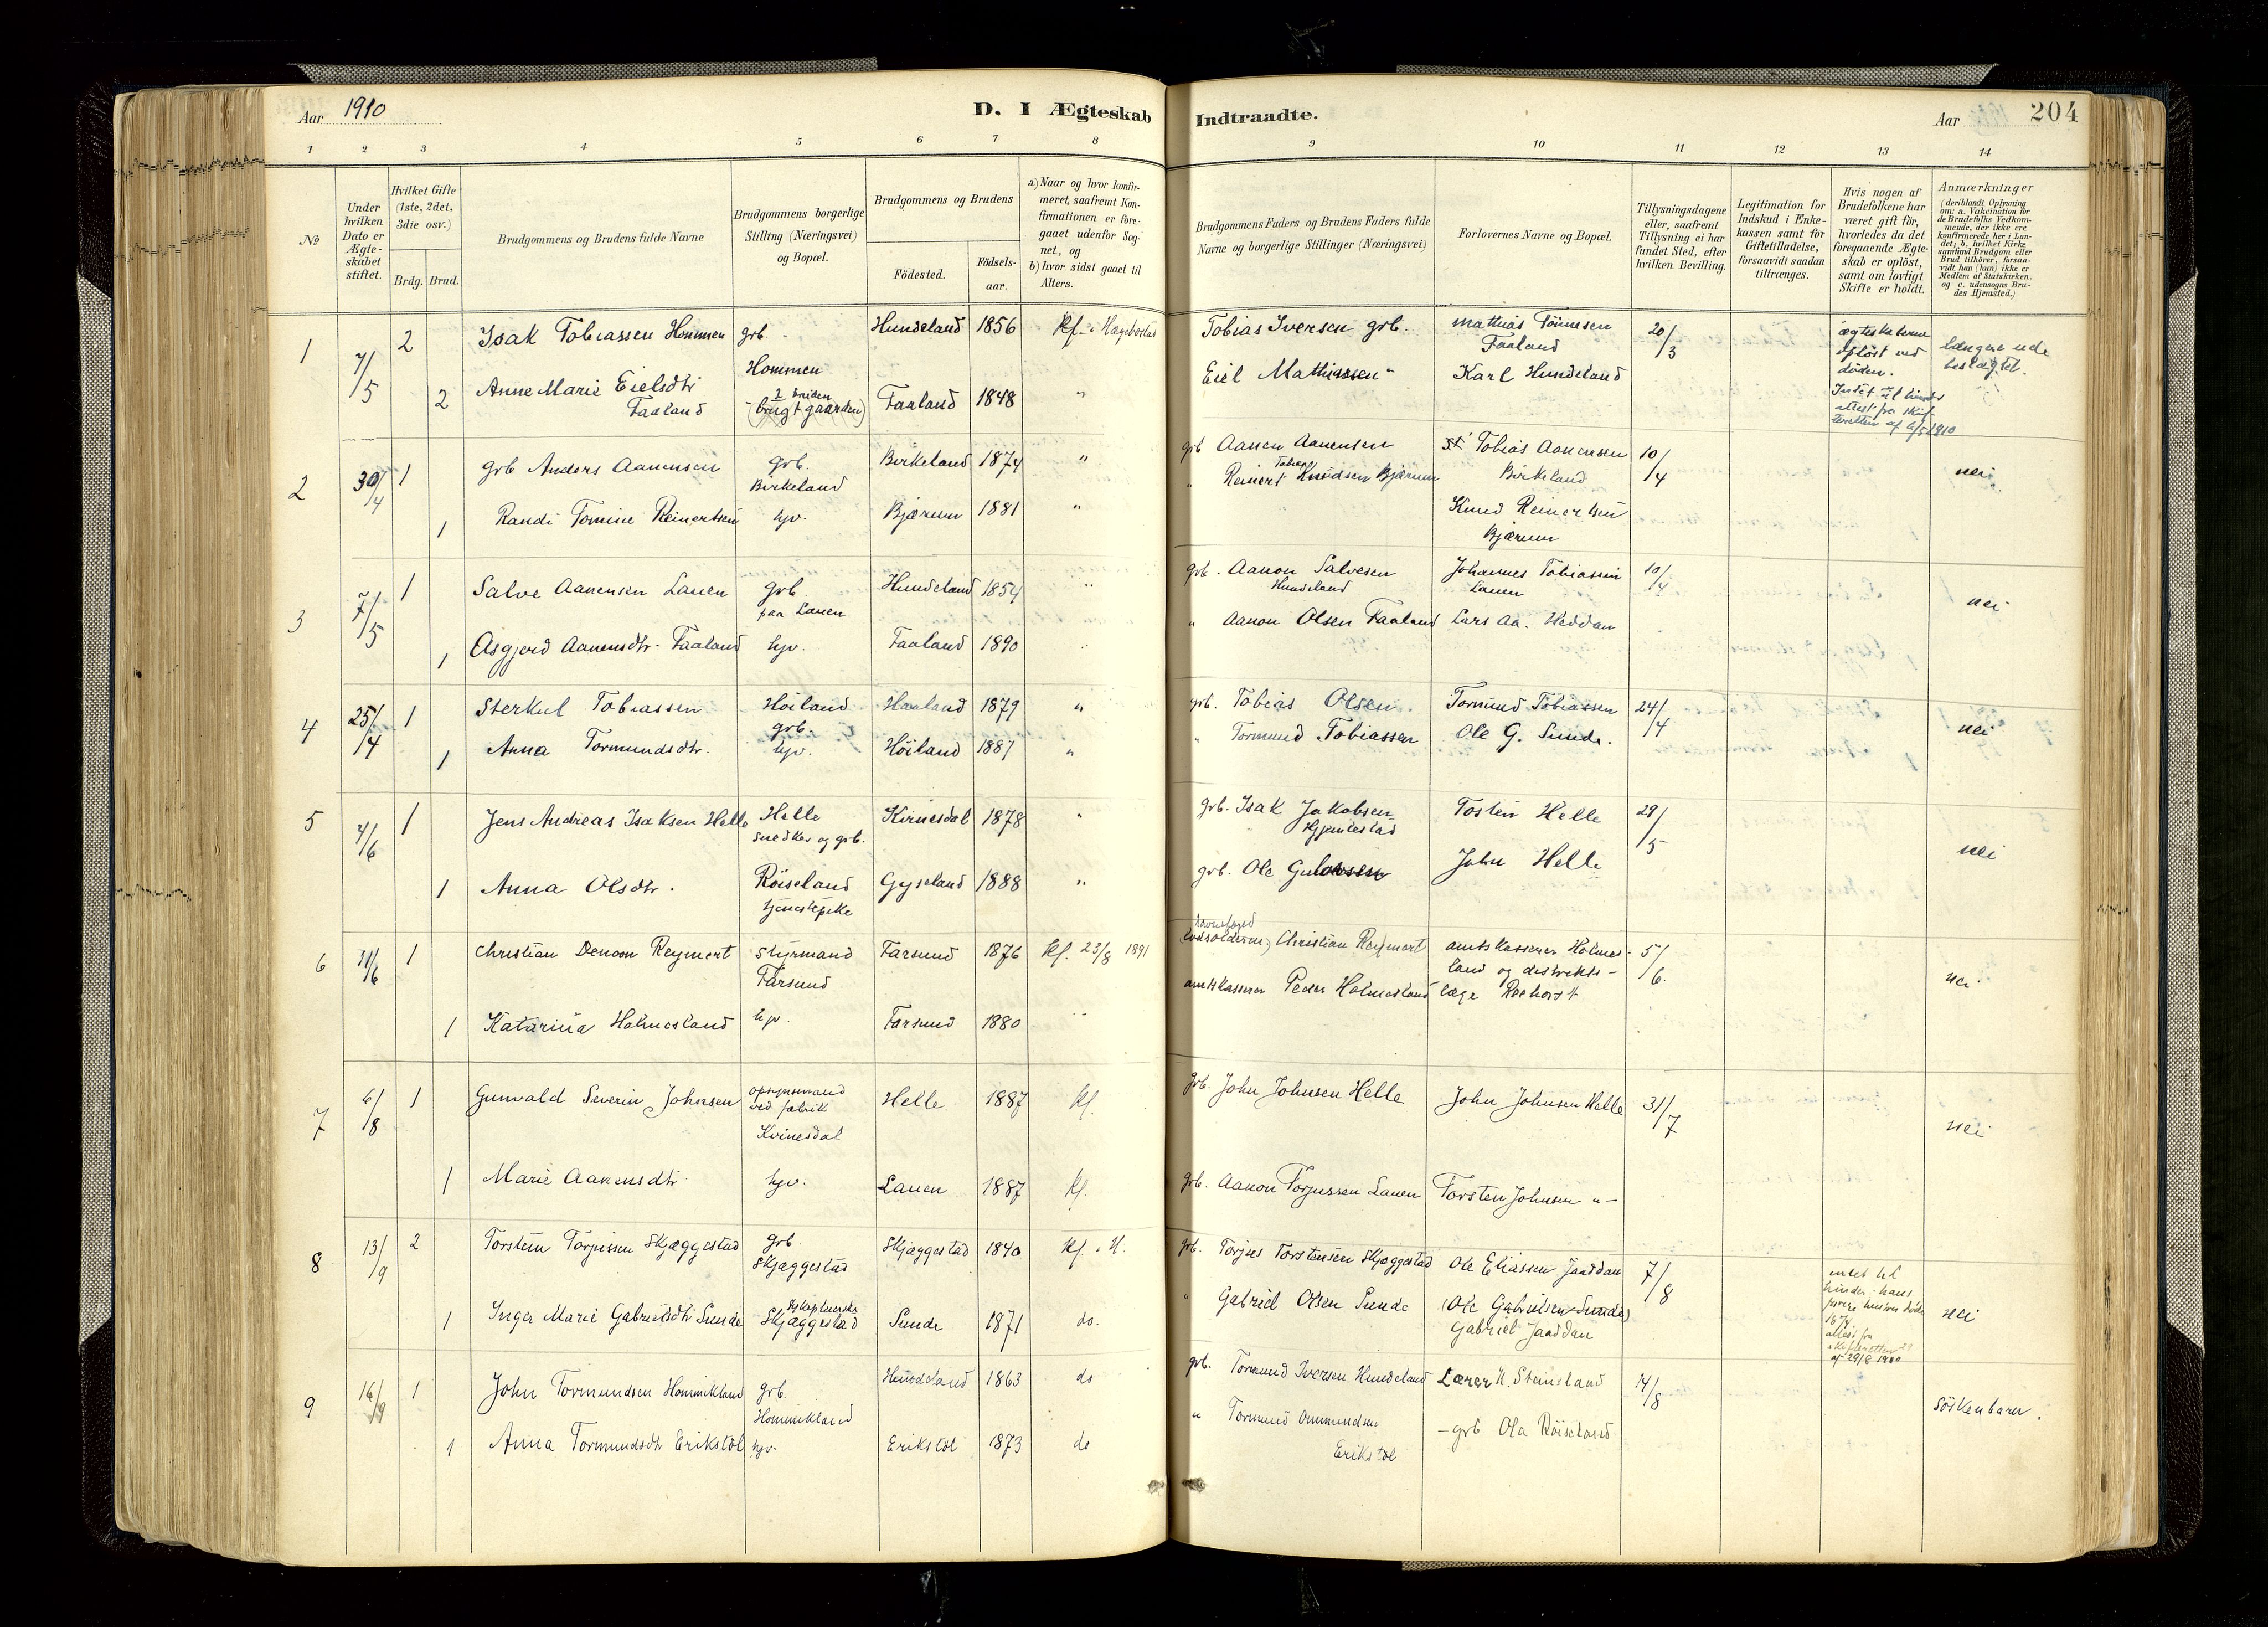 Aar 1910
D. I Ægteskab Indtraadte.
Aar
204
1 2 3 4 5 6 7 8 9 10 11 12 13 14
No
Under hvilken Dato er Ægte-skabet stiftet.
Hvilket Gifte (1ste, 2det, 3die osv.)
Brdg. Brud.
Brudgommens og Brudens fulde Navne
Brudgommens borgerlige Stilling (Næringsvei) og Bopæl.
Brudgommens og Brudens
Födested.
Födsels-aar.
a) Naar og hvor konfir-meret, saafremt Kon-firmationen er fore-gaaet udenfor Sog-net, og
b) hvor sidst gaaet til Alters.
Brudgommens Faders og Brudens Faders fulde Navne og borgerlige Stillinger (Næringsvei)
Forlovernes Navne og Bopæl.
Tillysningsdagene eller, saafremt Tillysning ei har fundet Sted, efter hvilken Bevilling.
Legitimation for Indskud i Enke-kassen samt for Giftetilladelse, forsaavidt saadan tiltrænges.
Hvis nogen af Brudefolkene har været gift för, hvorledes da det foregaaende Ægte-skab er oplöst, samt om lovligt Skifte er holdt.
Anmærkninger (deriblandt Oplysning om: a. Vakcination for de Brudefolks Vedkom-mende, der ikke ere konfirmerede her i Lan-det; b. hvilket Kirke samfund Brudgom eller Brud tilhörer, forsaa-vidt han (hun) ikke er Medlem af Statskirken, og c. udensogns Bru-des Hjemsted.)
1 7/5 2 Isak Tobiassen Hommen grb. - Hommen Hundeland 1856 Kf. i Hægebostad Tobias Iversen grb. Mathias Tönnesen Faaland 20/3
ægteskaberne oplöst ved döden.
længere ude beslægtet.
2 Anne Marie Eielsdtr Faaland (brugt gaarden) Faaland 1848 " Eiel Mathiassen " Karl Hundeland
2 30/4 1 grb Anders Aanensen grb. Birkeland Birkeland 1874 " grb Aanen Aanensen Tobias Aanensen Birkeland 10/4 nei
1 Randi Tomine Reinertsen hjv. Bjærum 1881 " " Reinert Knudsen Bjærum Knud Reinertsen Bjærum
3 7/5 1 Salve Aanensen Lauen grb. paa Lauen Hundeland 1854 " grb. Aanon Salvesen Hundeland Johannes Tobiassen Lauen 10/4 nei
1 Asgjerd Aanensdtr. Faaland hjv. Faaland 1890 " Aanon Olsen Faaland Lars Aa. Heddan
4 25/4 1 Sterkul Tobiassen Höiland grb. Haaland 1879 " grb. Tobias Olsen Tormund Tobiassen 24/4 nei
1 Anna Tormundsdtr. hjv. Höiland 1887 " " Tormund Tobiassen Ole G. Sunde.
5 4/6 1 Jens Andreas Isaksen Helle Helle snedker og grb. Kvinesdal 1878 " grb. Isak Jakobsen Hjemlestad Tosten Helle 29/5 nei
1 Anna Olsdtr. Röiseland tjenestepike Gyseland 1888 " grb. Ole John Helle
6 11/6 1 Christian Denoon Reymert Styrmand Farsund Farsund 1876 Kf. 23/8 1891 Christian Reymert amtskasserer Holmesland og distriktslæge Reehorst 5/6 nei
1 Katarina Holmesland hjv. Farsund 1880 amtskasserer Peder Holmesland
7 6/8 1 Gunvald Severin Johnsen opsynsmand ved fabrik Kvinesdal Helle 1887 Kf. grb. John Johnsen Helle John Johnsen Helle 31/7 nei
1 Marie Aanensdtr hjv. Lauen 1887 Kf. grb. Aanon Torjussen Lauen Torsten Johnsen " -
8 13/9 2 Torstein Torjussen Skjæggestad grb Skjæggestad Skjæggestad 1840 Kf. i H. grb. Torjus Torstensen Skjæggestad Ole Eliassen Jaaddan 7/8
intet til hinder. hans forrige hustru döde
attest fra skifteretten af 29/8 1910
nei
1 Inger Marie Gabrielsdtr Sunde Skjæggestad Sunde 1871 do. " Gabriel Olsen Sunde (Ole Gabrielsen Sunde) Gabriel Jaaddan
9 16/9 1 John Tormundsen Hommikland grb. Hommikland Hundeland 1863 do grb. Tormund Iversen Hundeland Lærer N. Steinsland 14/8 Söskenbarn.
1 Anna Tormundsdtr Erikstöl hjv. Erikstöl 1873 do " Tormund Ommundsen Erikstöl - grb Ola Röiseland